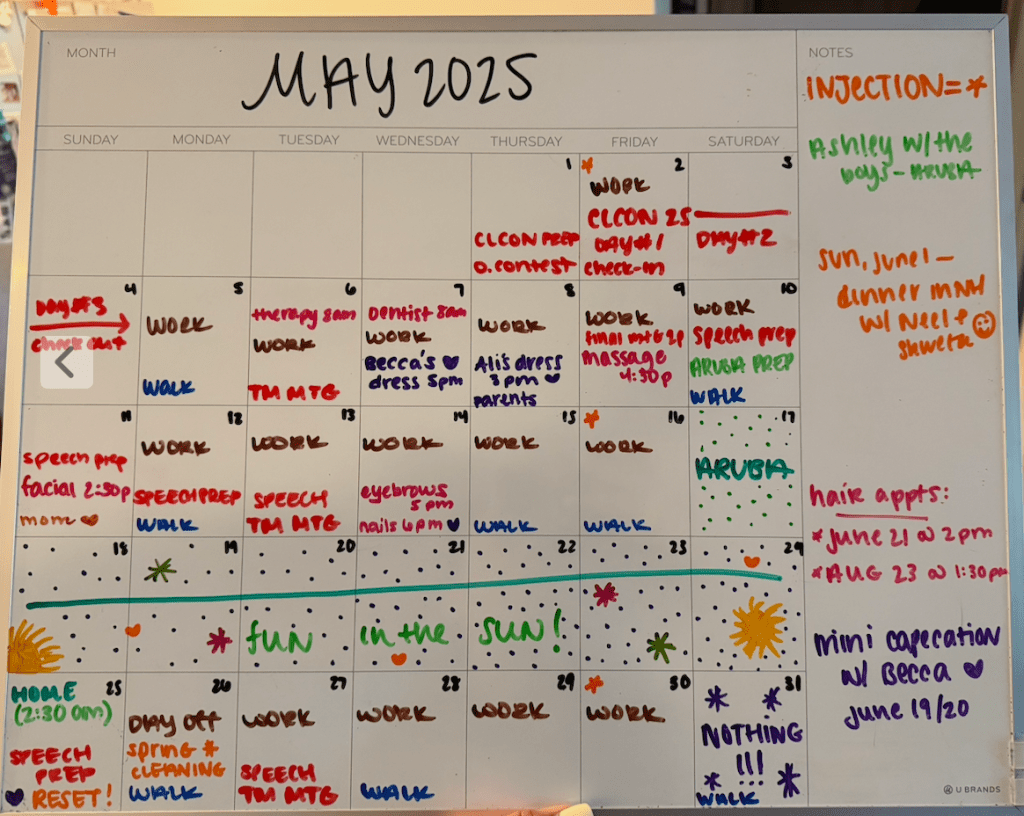 MONTH
MAY 2025
SUNDAY MONDAY TUESDAY WEDNESDAY THURSDAY FRIDAY SATURDAY
1
CLCON PREP
O. contest
* 2
WORK
CLCON 25
DAY#1
check-in
3
DAY#2
4
DAY#3
check out
5
WORK
WALK
6
therapy 8am
WORK
TM MTG
7
Dentist 8am
WORK
Becca's
dress 5pm
8
WORK
Ali's dress
3pm
parents
9
WORK
final mtg 2p
massage
4:30p
10
WORK
Speech prep
ARUBA PREP
WALK
11
speech prep
facial 2:30p
mom
12
WORK
SPEECH PREP
WALK
13
WORK
SPEECH
TM MTG
14
WORK
eyebrows
5pm
nails 6pm
15
WORK
WALK
* 16
WORK
WALK
17
ARUBA
18
19
20
21
22
23
24
fun in the sun!
25
HOME
(2:30 am)
SPEECH
PREP
RESET!
26
DAY OFF
spring *
CLEANING
WALK
27
WORK
SPEECH
TM MTG
28
WORK
WALK
29
WORK
* 30
WORK
31
NOTHING
!!!
WALK
NOTES
INJECTION= *
Ashley w/the
boys - ARUBA
sun, june1 -
dinner mnh
w/ Neel +
Shweta
hair appts:
*June 21 @ 2pm
*AUG 23 @ 1:30pm
mini capecation
w/ Becca
june 19/20
U BRANDS